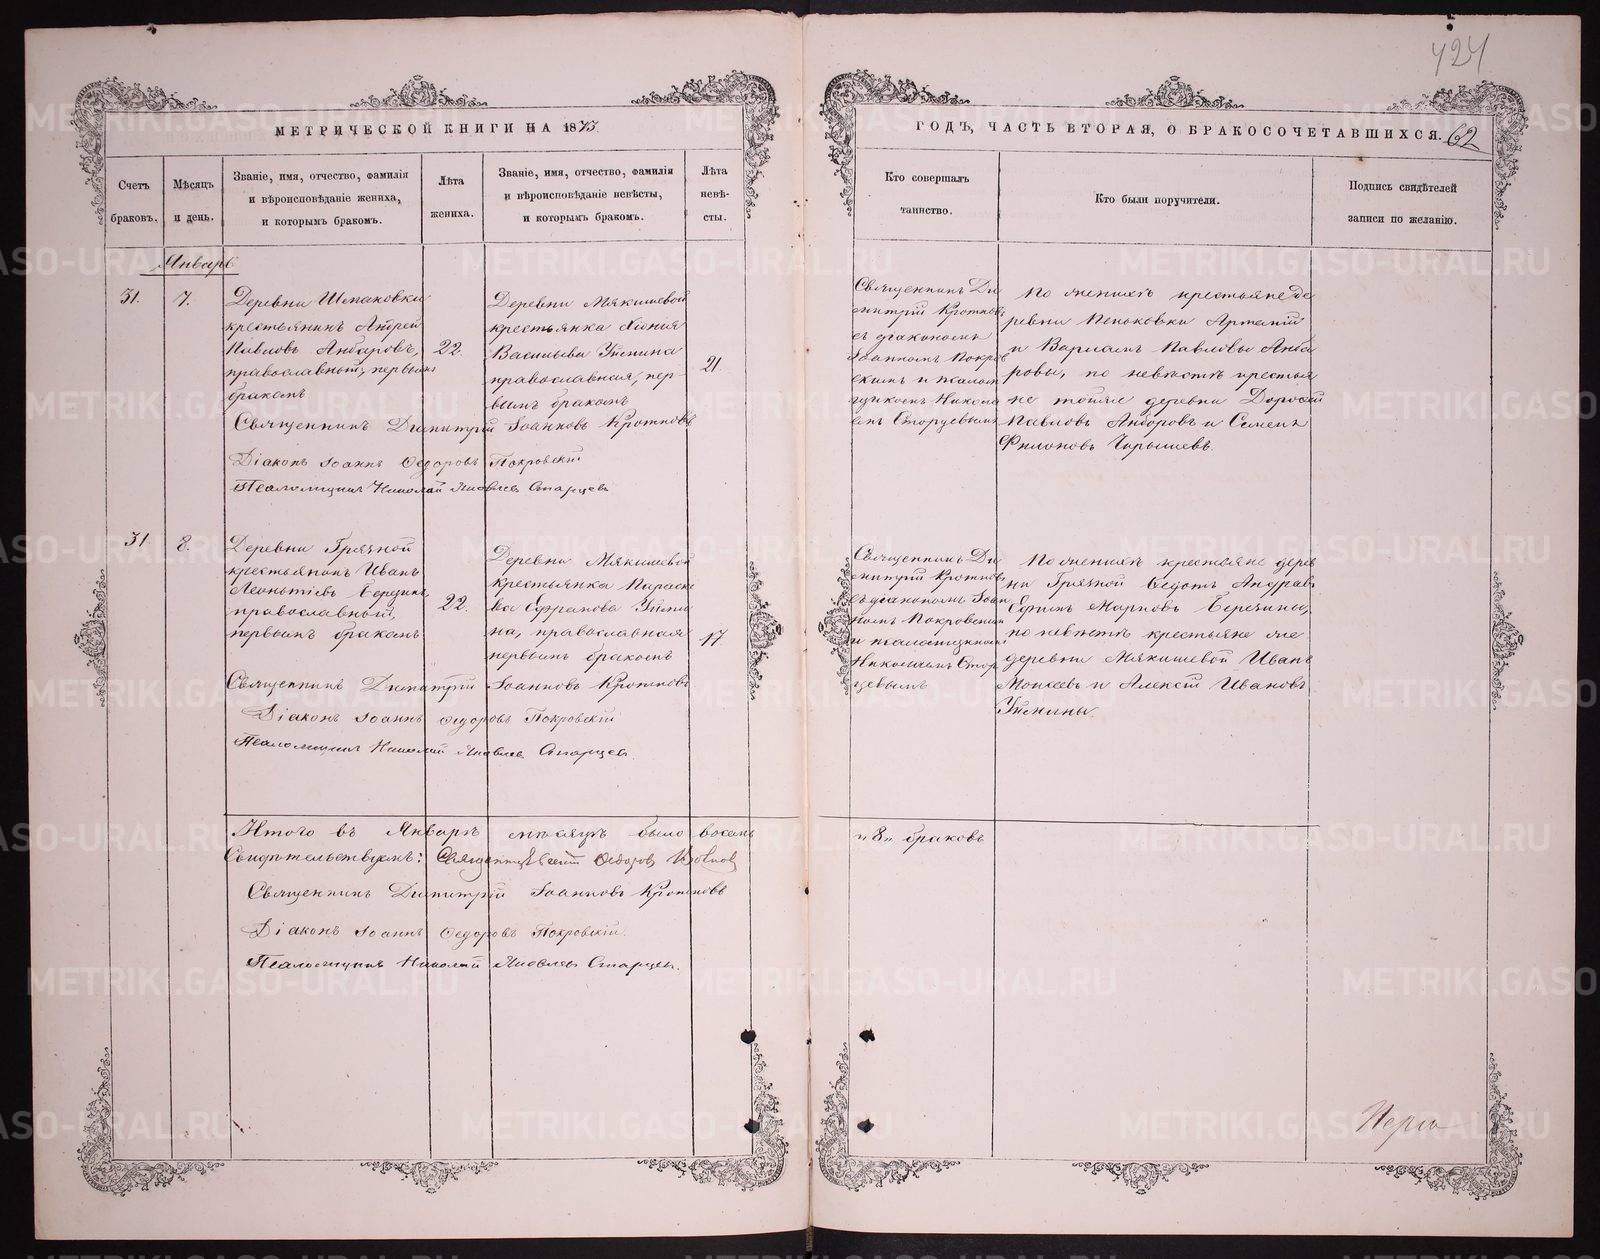 424
МЕТРИЧЕСКОЙ КНИГИ НА 1873
ГОДЪ, ЧАСТЬ ВТОРАЯ, О БРАКОСОЧЕТАВШИХСЯ. 62
Счетъ браковъ.
Мѣсяцъ и день.
Званіе, имя, отчество, фамилія
и вѣроисповѣданіе жениха,
и которымъ бракомъ.
Лѣта
жениха.
Званіе, имя, отчество, фамилія
и вѣроисповѣданіе невѣсты,
и которымъ бракомъ.
Лѣта
невѣ-
сты.
Кто совершалъ
таинство.
Кто были поручители.
Подпись свидѣтелей
записи по желанію.
Январь
31.
7.
Деревни Шпаковки
крестьянинъ Андрей
Павловъ Анбаровъ,
православный, первымъ
бракомъ
22.
Деревни Мякишевой
крестьянка
Васильева
православная, пер-
вымъ бракомъ
21
Священникъ Ди
митрій Кротковъ
съ діакономъ
Іоанномъ Покров
скимъ и псалом
щикомъ Никола
емъ Старцевымъ
По женихѣ крестьяне де
ревни Артемій
и Варлаамъ Павловы Анба
ровы, по невѣстѣ крестья
не тойже деревни Дорофей
Павловъ Анбаровъ и Семенъ
Филоновъ
Священникъ Димитрій Іоанновъ Кротковъ
Діаконъ Іоаннъ Ѳедоровъ Покровскій
Псаломщикъ Николай Яковлевъ Старцевъ
31
8.
Деревни Грязной
крестьянинъ Иванъ
Леонтіевъ
православный,
первымъ бракомъ
22.
Деревни Мякишевой
крестьянка Параске
ва
на, православная
первымъ бракомъ
17
Священникъ Ди
митрій Кротковъ
съ діакономъ Іоан
номъ Покровскимъ
и псаломщикомъ
Николаемъ Стар
цевымъ
По женихѣ крестьяне дерев
ни Грязной Ѳедотъ
Марковъ Березины,
по невѣстѣ крестьяне же
деревни Мякишевой Иванъ
Моисеевъ и Алексій Ивановъ
Священникъ Димитрій Іоанновъ Кротковъ
Діаконъ Іоаннъ Ѳедоровъ Покровскій
Псаломщикъ Николай Яковлевъ Старцевъ
Итого въ Январѣ мѣсяцѣ было восемь
„8„ браковъ
Свидѣтельствуемъ: Ѳедоровъ
Священникъ Димитрій Іоанновъ Кротковъ
Діаконъ Іоаннъ Ѳедоровъ Покровскій.
Псаломщикъ Николай Яковлевъ Старцевъ.
METRIKI.GASO-URAL.RU